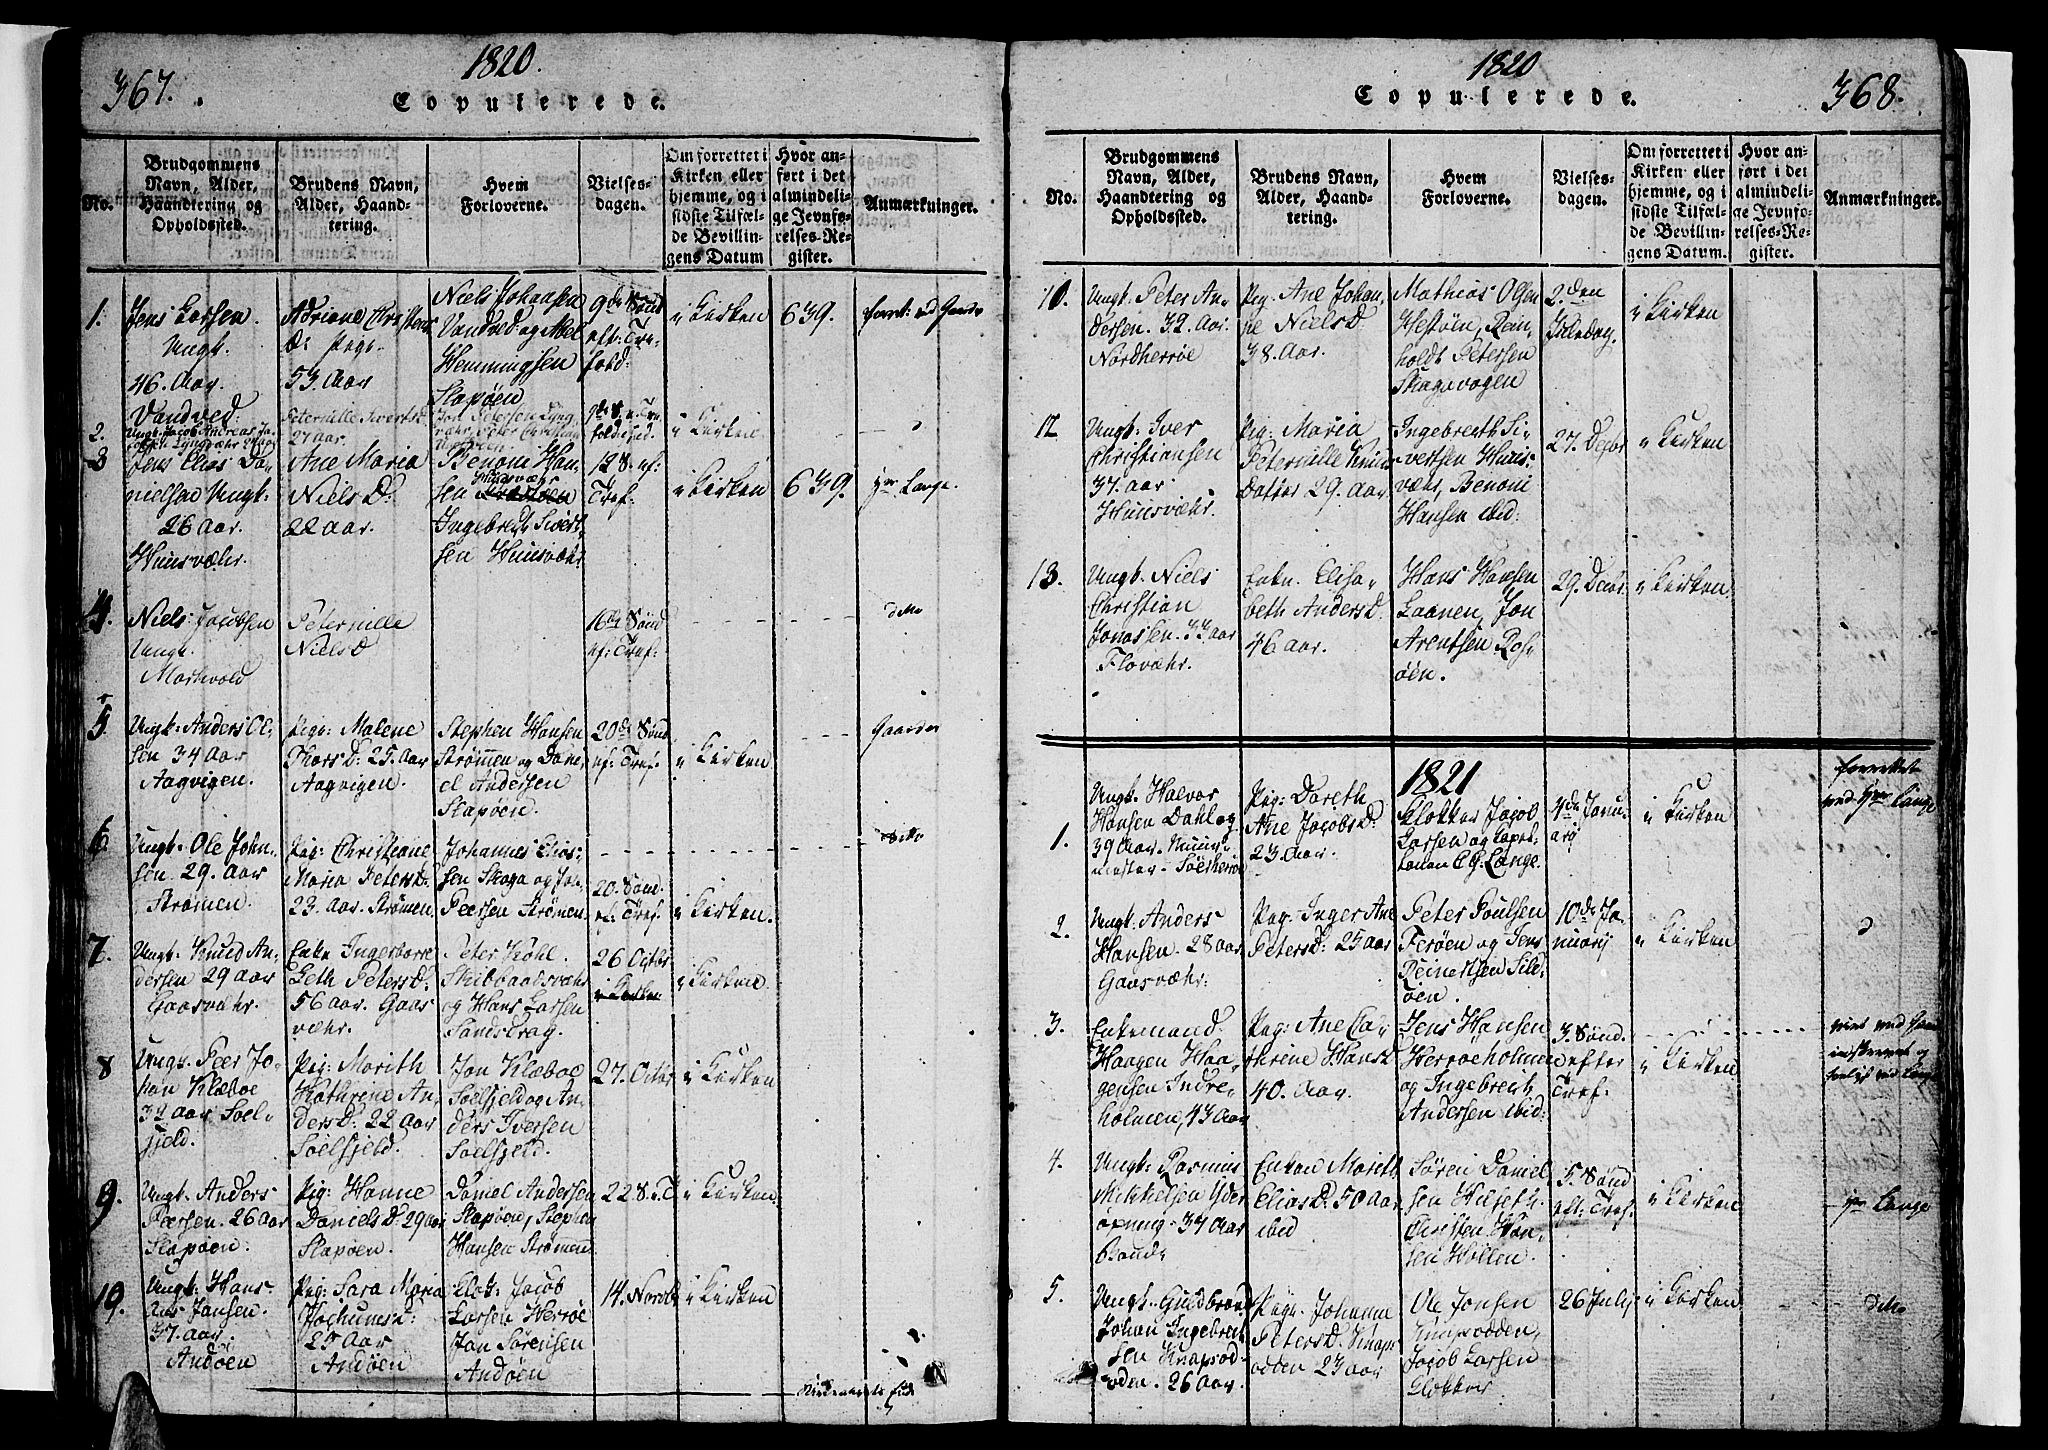 367.
1820.
Copulerede.
No.
Brudgommens
Navn, Alder,
Haandtering og
Opholdssted.
Brudens Navn,
Alder, Haand-
tering.
Hvem
Forloverne.
Vielses-
dagen.
Om forrettet i
Kirken eller
hjemme, og i
sidste Tilfæl-
de Bevillin-
gens Datum
Hvor an-
ført i det
almindeli-
ge Jevnfø-
relses-Re-
gister.
Anmærkninger.
1.
Jens Larsen
Ungk.
46. Aar.
Vandved
Adriane Christens
D: Pige.
53. Aar
Niels Johansen
Vandved og Abel
Hemmingsen
Slapøen
9de Sønd
eft: Tre-
fold:
i Kirken
639.
2.
Ungk. Jacob Andreas Ja-
Peternille Sivertsd.
27 aar.
i Kirken
3
Jens Elias Da-
nielsen Ungk.
26 Aar.
Huusvæhr.
Ane Maria
Niels D.
22 aar.
Benoni Han-
sen Huusvæhr
Ingebregt Sivert-
sen Huusvæhr
12 S. ef:
Tref.
i Kirken
639.
Hr Lange.
4.
Niels Jacobsen
Ungk.
Petternille
Niels D
16de Sønd
ef: Tref:
ditto
5
Ungk. Anders Ol-
sen 34 aar
Aagvigen.
Pige: Malene
Thors D: 25. Aar
Aagvigen.
Stephen Hansen
Strømmen og Dani-
el Andersen
Slapøen.
20de Sønd
ef: Tref.
i Kirken
6.
Ungk. Ole John-
sen. 29. aar
Strømen.
Pig: Christiane
Maria Peters D:
23. Aar. Strømen.
Johannes Elias-
sen Skaga og Joh.
Peersen Strømen.
20. Sønd.
ef: Tref.
i Kirken.
ditto
7.
Ungk. Knud An-
dersen 29 aar
Gaasvæhr.
Enke Ingeborre
Beth Peters D.
56 aar. Gaas
væhr.
Peter Køhl.
Skibbaadsvæhr
og Hans Larsen
Sandsdrag.
26 Octbr
i Kirken.
8
Ungk. Peer Jo-
han Klæboe
32 aar Søel-
fjeld.
Pig: Marith
Kathrine An-
ders D: 22 aar
Søelfjeld.
Jon Klæboe
Søelfjeld og An-
ders Iversen
Søelfjeld.
27. Octbr
i Kirken
9.
Ungk. Anders
Peersen. 26 aar
Slapøen.
Pig: Hanne
Daniels D. 29 aar
Slapøen.
Daniel Andersen
Slapøen, Stephen
Hansen Strømmen
22 S. e. T
i Kirken.
10.
Ungk: Hans
Jansen.
37. aar.
Andøen
Pig: Sara Maria
Jochums D:
25 Aar
Andøen
Klok. Jacob
Larsen Herrøe
Jon Sørensen
Andøen
14. Novbr
i Kirken
1820
Copulerede.
368.
No.
Brudgommens
Navn, Alder,
Haandtering og
Opholdssted.
Brudens Navn,
Alder, Haand-
tering.
Hvem
Forloverne.
Vielses-
dagen.
Om forrettet i
Kirken eller
hjemme, og i
sidste Tilfæl-
de Bevillin-
gens Datum.
Hvor an-
ført i det
almindeli-
ge Jevnfø-
relses-Re-
gister.
Anmærkninger.
10.
Ungk. Peter An-
dersen. 32. Aar.
Nordherrøe
Pig. Ane Johan-
ne Niels D.
38. Aar.
Mathias Olsen
Hestøen, Rein-
holdt Petersen
Skagavogen
2.den
Juledag.
i Kirken
12
Ungk. Iver
Christiansen
37. aar.
Huusvæhr.
Pig. Maria
Peternille Knuds
Datter 29. Aar.
Ingebregth Si-
vertsen Huus-
væhr, Benoni
Hansen ibid:
27. Decbr
i Kirken
13.
Ungk. Niels
Christian
Jonassen. 33 aar
Flovæhr.
Enkn. Elisa-
beth Anders D.
46 aar.
Hans Hansen
Laanen, Jon
Arentsen Ros-
øen.
29. Decbr.
i Kirken
1821
1.
Ungk. Halvor
Hansen Dahl og
39 Aar. Muur-
mester. Søerherrøe
Pig: Dorethe
Ane Jacobs D:
23. Aar.
Klokker Jacob
Larsen og Capei-
lanen C. G. Lange.
4de Janu-
arij
i Kirken
forrettet
ved Hr Lange
2.
Ungk. Anders
Hansen. 28 aar
Gaasvæhr:
Pig: Inger Ane
Peters D: 25 aar
Peter Poulsen
Ferøen og Jens
Reinertsen Sild-
øen.
10de Ja-
nuarij
i Kirken
3.
Enkemand.
Haagen Haa-
gensen Indre-
holmen, 43 Aar
Pig: Ane Ca-
thrine Hans D
40. Aar.
Jens Hansen
Herrøeholmen
og Ingebreth
Andersen ibid:
3. Sønd
efter
Tref:
i Kirken
4.
Ungk: Rasmus
Mikkelsen Yder
øxning 34 Aar
Enken Marith
Elias D: 50 Aar
ibid
Søren Daniel
sen Hilseth.
Christen Han-
sen Hollen.
5. Sønd
eft: Tref.
i Kirken
Hr Lange
5.
Ungk. Guldbrand
Johan Ingebreth
sen Knapsod-
oden. 26 aar.
Pige. Johanna
Peters D. Knaps
odden 23 aar
Ole Jonsen
Knapsodden,
Jacob Larsen
Klokker
26 Julij
i Kirken
ditto